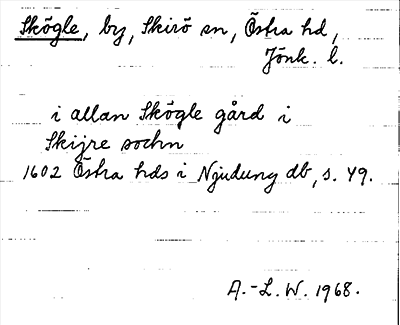 Skögle, by, Skirö sn, Östra hd,
Jönk. l.
i allan Skögle gård i
Skijre sochn
1602 Östra hds i Njudung db, s. 49.
A.-L. W. 1968.